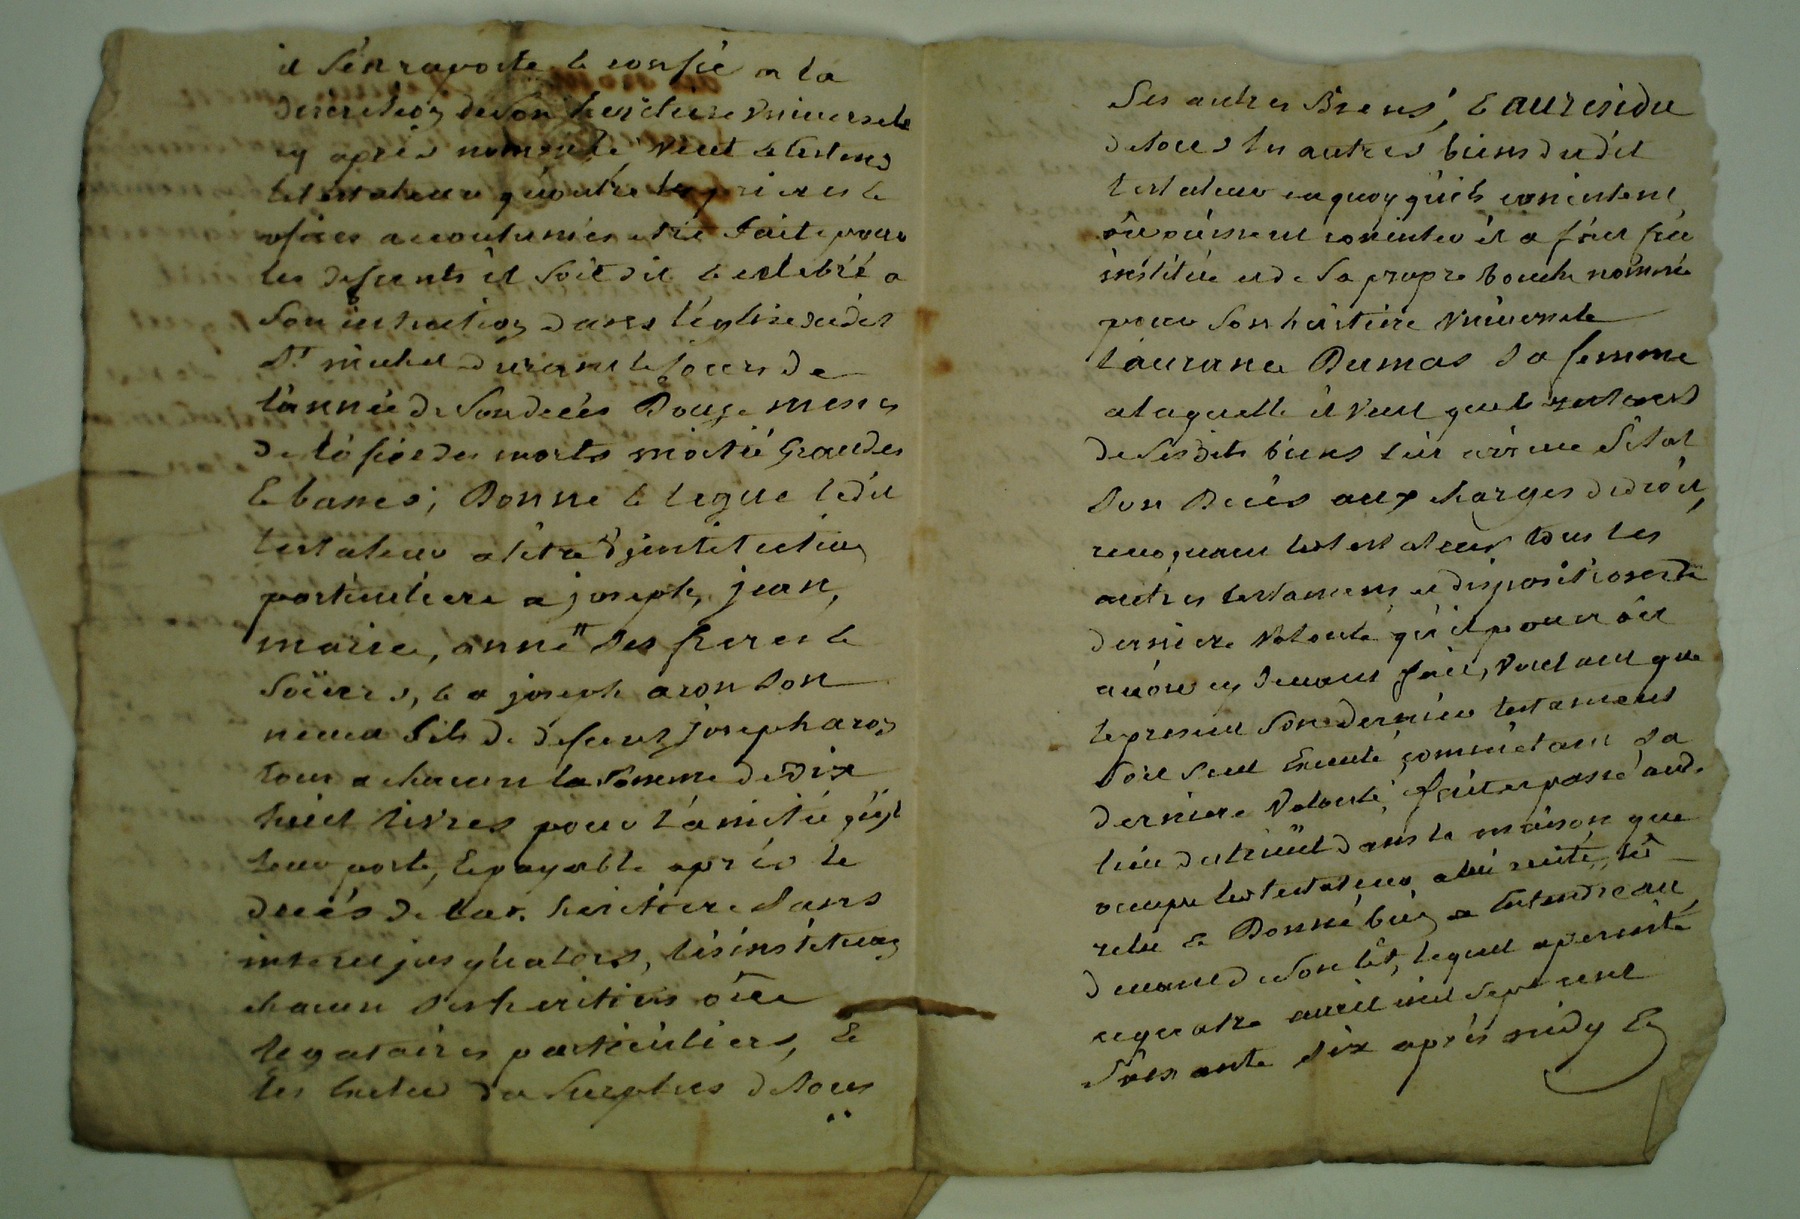 il s'en raporte & confie a la
discretion de son heritiere universelle
cy après nommée, veut & entend
le testateur qu'outre les prieres &
ofices accoutumés etre fait pour
les defunts il soit dit & celebré a
son intention dans l'eglise dudit
St michel durant le cours de
l'année de son decès Douze messes
de l'ofice des morts moitié Grandes
& basses; Donne & legue ledit
testateur a titre d'jnstitution
particuliere a joseph, jean,
marie, anne ses freres &
soeurs, & a joseph aron son
neveu fils de defunt joseph aron
tous a chacun la somme de dix
huit livres pour l'amitié qu'il
leur porte, & payable après le
decés de lad. heritiere sans
interet jusqu'alors, les instituan
chacun ses heritiers ou
legataires particuliers, &
les exclud du surplus de tous
ses autres Biens, & au residu
de tous les autres biens dudit
testateur en quoy qu'ils consistent
ou puissent consister il a fait
institué et de sa propre bouche nommé
pour son heritiere universelle
Laurance Dumas sa femme
a laquelle il veut que le restant
de sesdits biens lui arrive sitot
son Decès aux charges de droit,
revoquant led testateur tous les
autres testamens et dispositions de
derniere volonté qu'il pouvroit
avoir cy devant fait, voulant que
le present son dernier testament
soit seul executé contenant sa
derniere volonté, fait et passé aud.
lieu dans la maison que
occupe led testateur, a lui recité, lû
relu & Donné bien a entendre au
devant de son lit, lequel
ce quatre avril mil sept cent
soixante six après midy &